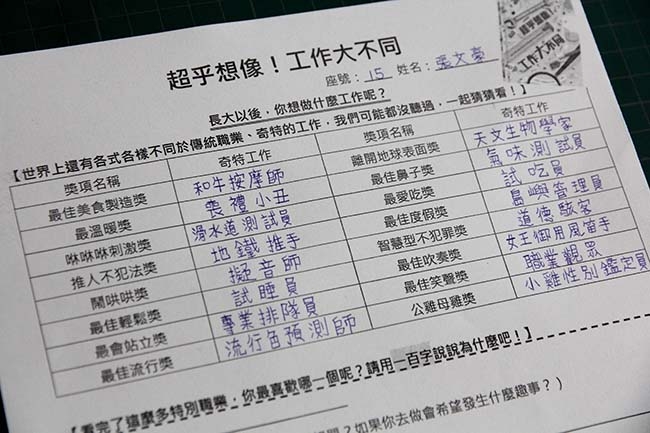 超乎想像！工作大不同
座號：15 姓名：張文豪
超乎想像
工作大不同
長大以後，你想做什麼工作呢？
【世界上還有各式各樣不同於傳統職業、奇特的工作，我們可能都沒聽過，一起猜猜看！】
獎項名稱 奇特工作 獎項名稱 奇特工作
最佳美食製造獎 和牛按摩師 離開地球表面獎 天文生物學家
最溫暖獎 喪禮小丑 最佳鼻子獎 氣味測試員
咻咻咻刺激獎 滑水道測試員 最愛吃獎 試吃員
推人不犯法獎 地鐵推手 最佳度假獎 島嶼管理員
鬧哄哄獎 擬音師 智慧型不犯罪獎 道德駭客
最佳輕鬆獎 試睡員 最佳吹奏獎 女王御用風笛手
最會站立獎 專業排隊員 最佳笑聲獎 職業觀眾
最佳流行獎 流行色預測師 公雞母雞獎 小雞性別鑑定員
【看完了這麼多特別職業，你最喜歡哪一個呢？請用一百字說說為什麼吧！】
？如果你去做會希望發生什麼趣事？）